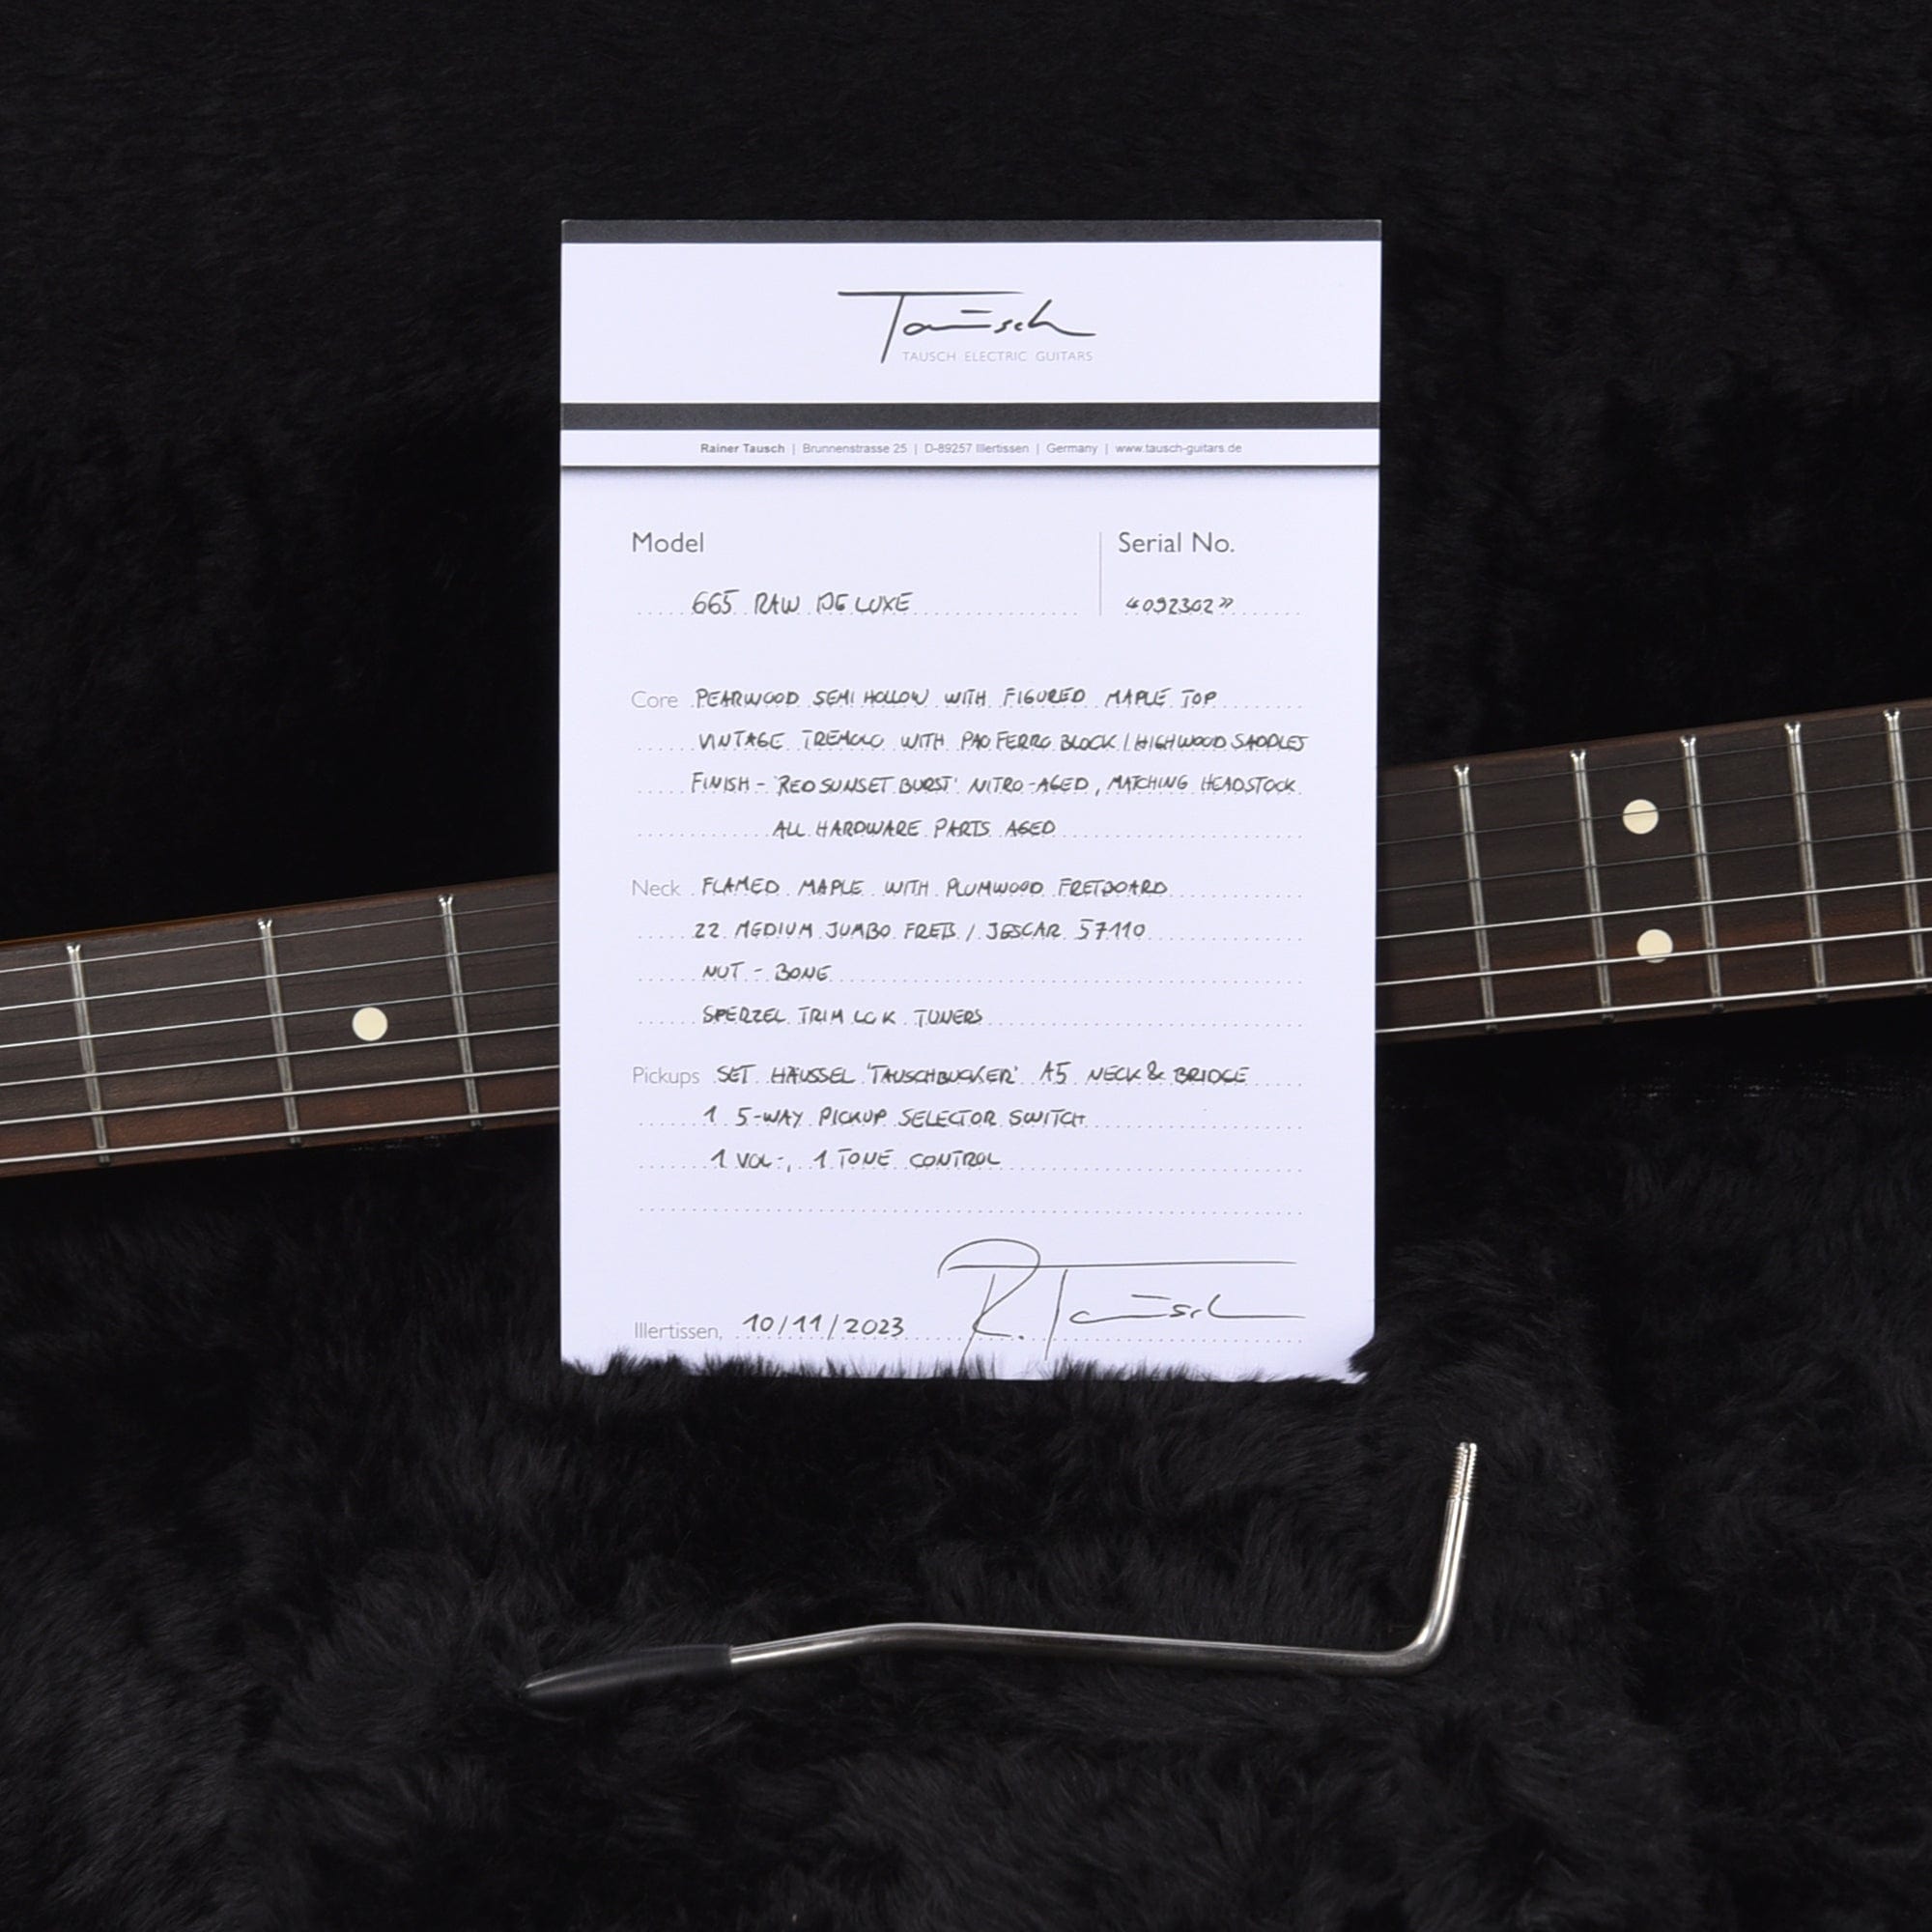 Tausch
TAUSCH ELECTRIC GUITARS
Rainer Tausch | Brunnenstrasse 25 | D-89257 Illertissen | Germany | www.tausch-guitars.de
Model Serial No.
665 RAW DE LUXE «092302»
Core PEARWOOD SEMI HOLLOW WITH FIGURED MAPLE TOP
VINTAGE TREMOLO WITH PAO FERRO BLOCK / HIGHWOOD SADDLES
FINISH - 'RED SUNSET BURST' NITRO-AGED, MATCHING HEADSTOCK
ALL HARDWARE PARTS AGED
Neck FLAMED MAPLE WITH PLUMWOOD FRETBOARD
22 MEDIUM JUMBO FRETS / JESCAR 57110
NUT - BONE
SPERZEL TRIM LOK TUNERS
Pickups SET HÄUSSEL 'TAUSCHBUCKER' A5 NECK & BRIDGE
1 5-WAY PICKUP SELECTOR SWITCH
1 VOL-, 1 TONE CONTROL
Illertissen, 10/11/2023 R. Tausch